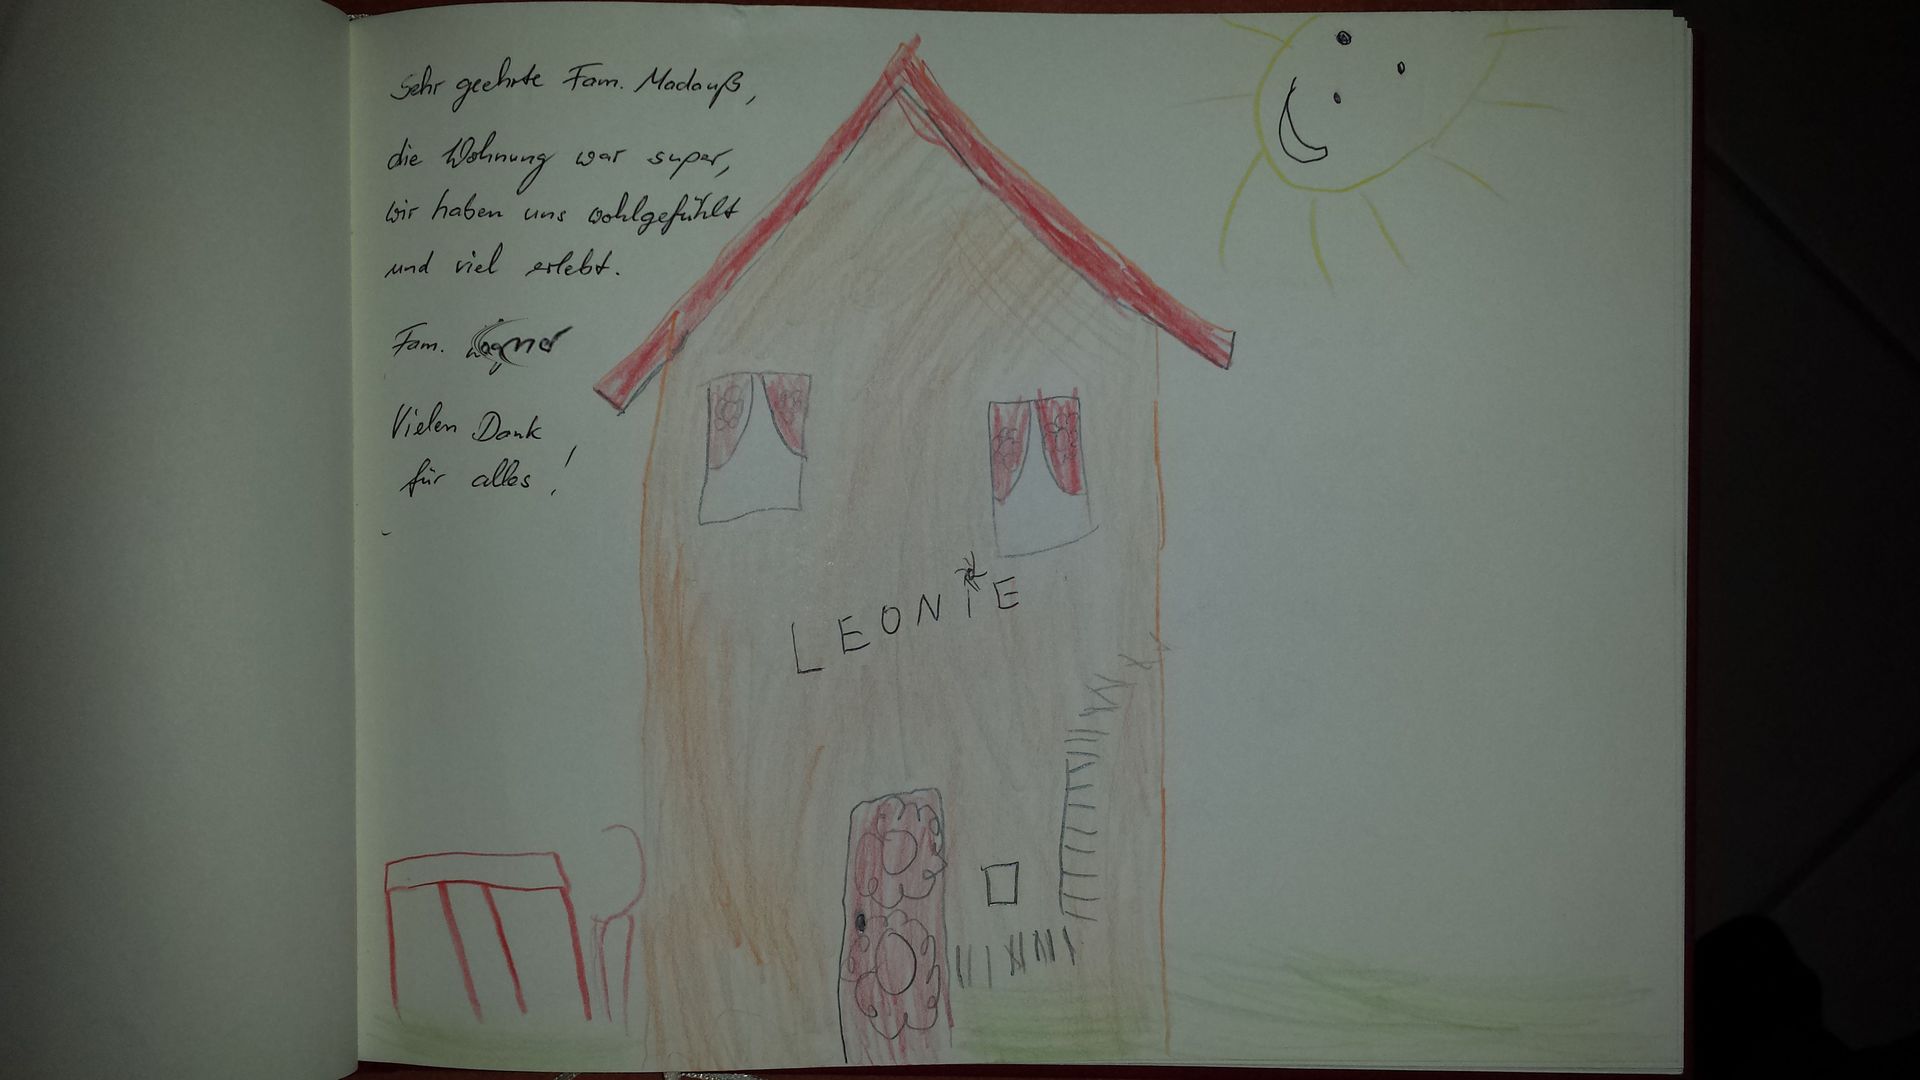 Sehr geehrte Fam. Madauß,
die Wohnung war super,
wir haben uns wohlgefühlt
und viel erlebt.
Fam. Wagner
Vielen Dank
für alles!
LEONiE